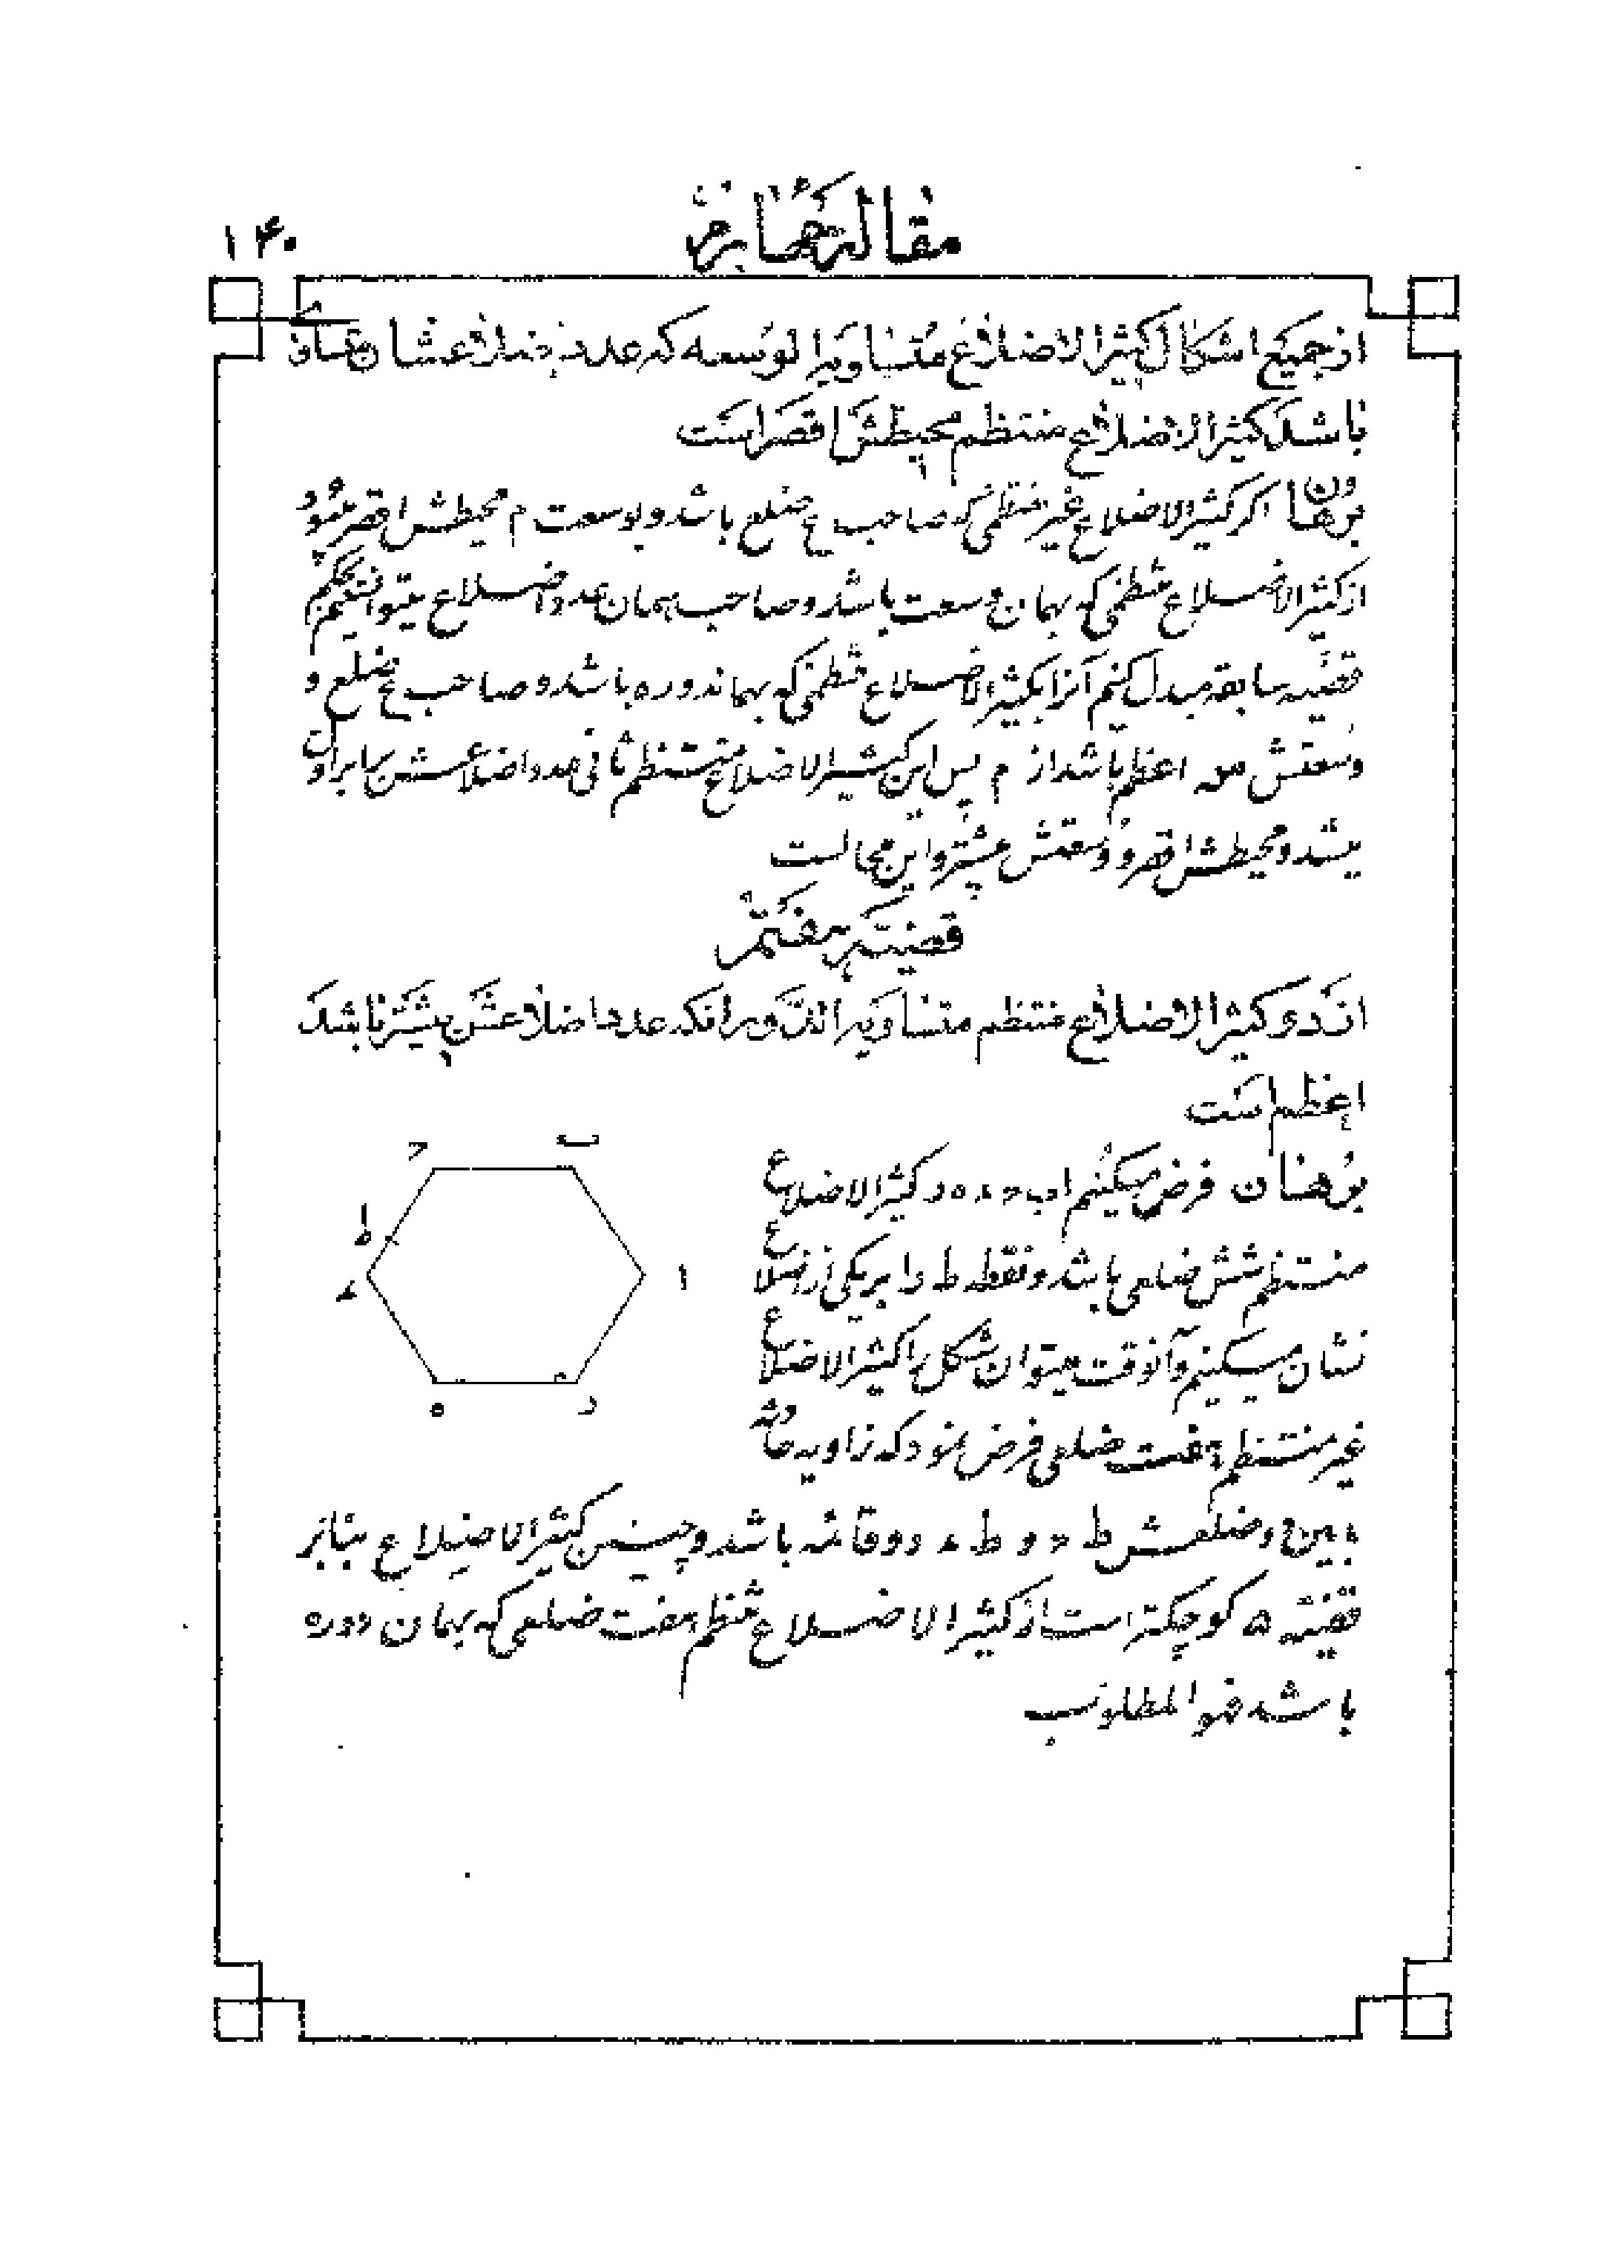 مقاله چهارم
۱۴۰
از جمیع اشکال کثیر الاضلاع متساویه الوسعه که عدد اضلاعشان مساوی
باشد کثیر الاضلاع منتظم محیطش اقصر است
برهان اکر کثیر الاضلاع غیر منتظمی که صاحب ع ضلع باشد و بوسعت م محیطش اقصر شود
از کثیر الاضلاع منتظمی که بهمان وسعت باشد و صاحب همان عدد اضلاع میتوانیم بحکم
قضیه سابقه مبدل کنیم آنرا بکثیر الاضلاع منتظمی که بهمان دوره باشد و صاحب ع ضلع و
وسعتش اعظم باشد از م پس این کثیر الاضلاع منتظم ثانی عدد اضلاعش برابر اول
میشد و محیطش اقصر و وسعتش بیشتر و این محالست
قضیه هفتم
از دو کثیر الاضلاع منتظم متساویه الدوره انکه عدد اضلاعش بیشتر باشد
اعظم است
برهان فرض میکنیم ا ب ح ء ه ر کثیر الاضلاع
منتظم شش ضلعی باشد و نقطه ط را بر یکی از اضلاع
نشان میکنیم و آنوقت میتوان شکل را کثیر الاضلاع
غیر منتظم هفت ضلعی فرض نمود که زاویه حادثه
ما بین دو ضلعش ط ح و ط ء دو قائمه باشد و چنین کثیر الاضلاع بنابر
قضیه ۵ کوچکتر است از کثیر الاضلاع منتظم هفت ضلعی که بهمان دوره
باشد فهو المطلوب
ب
ح
ط
ا
ء
ه
ر